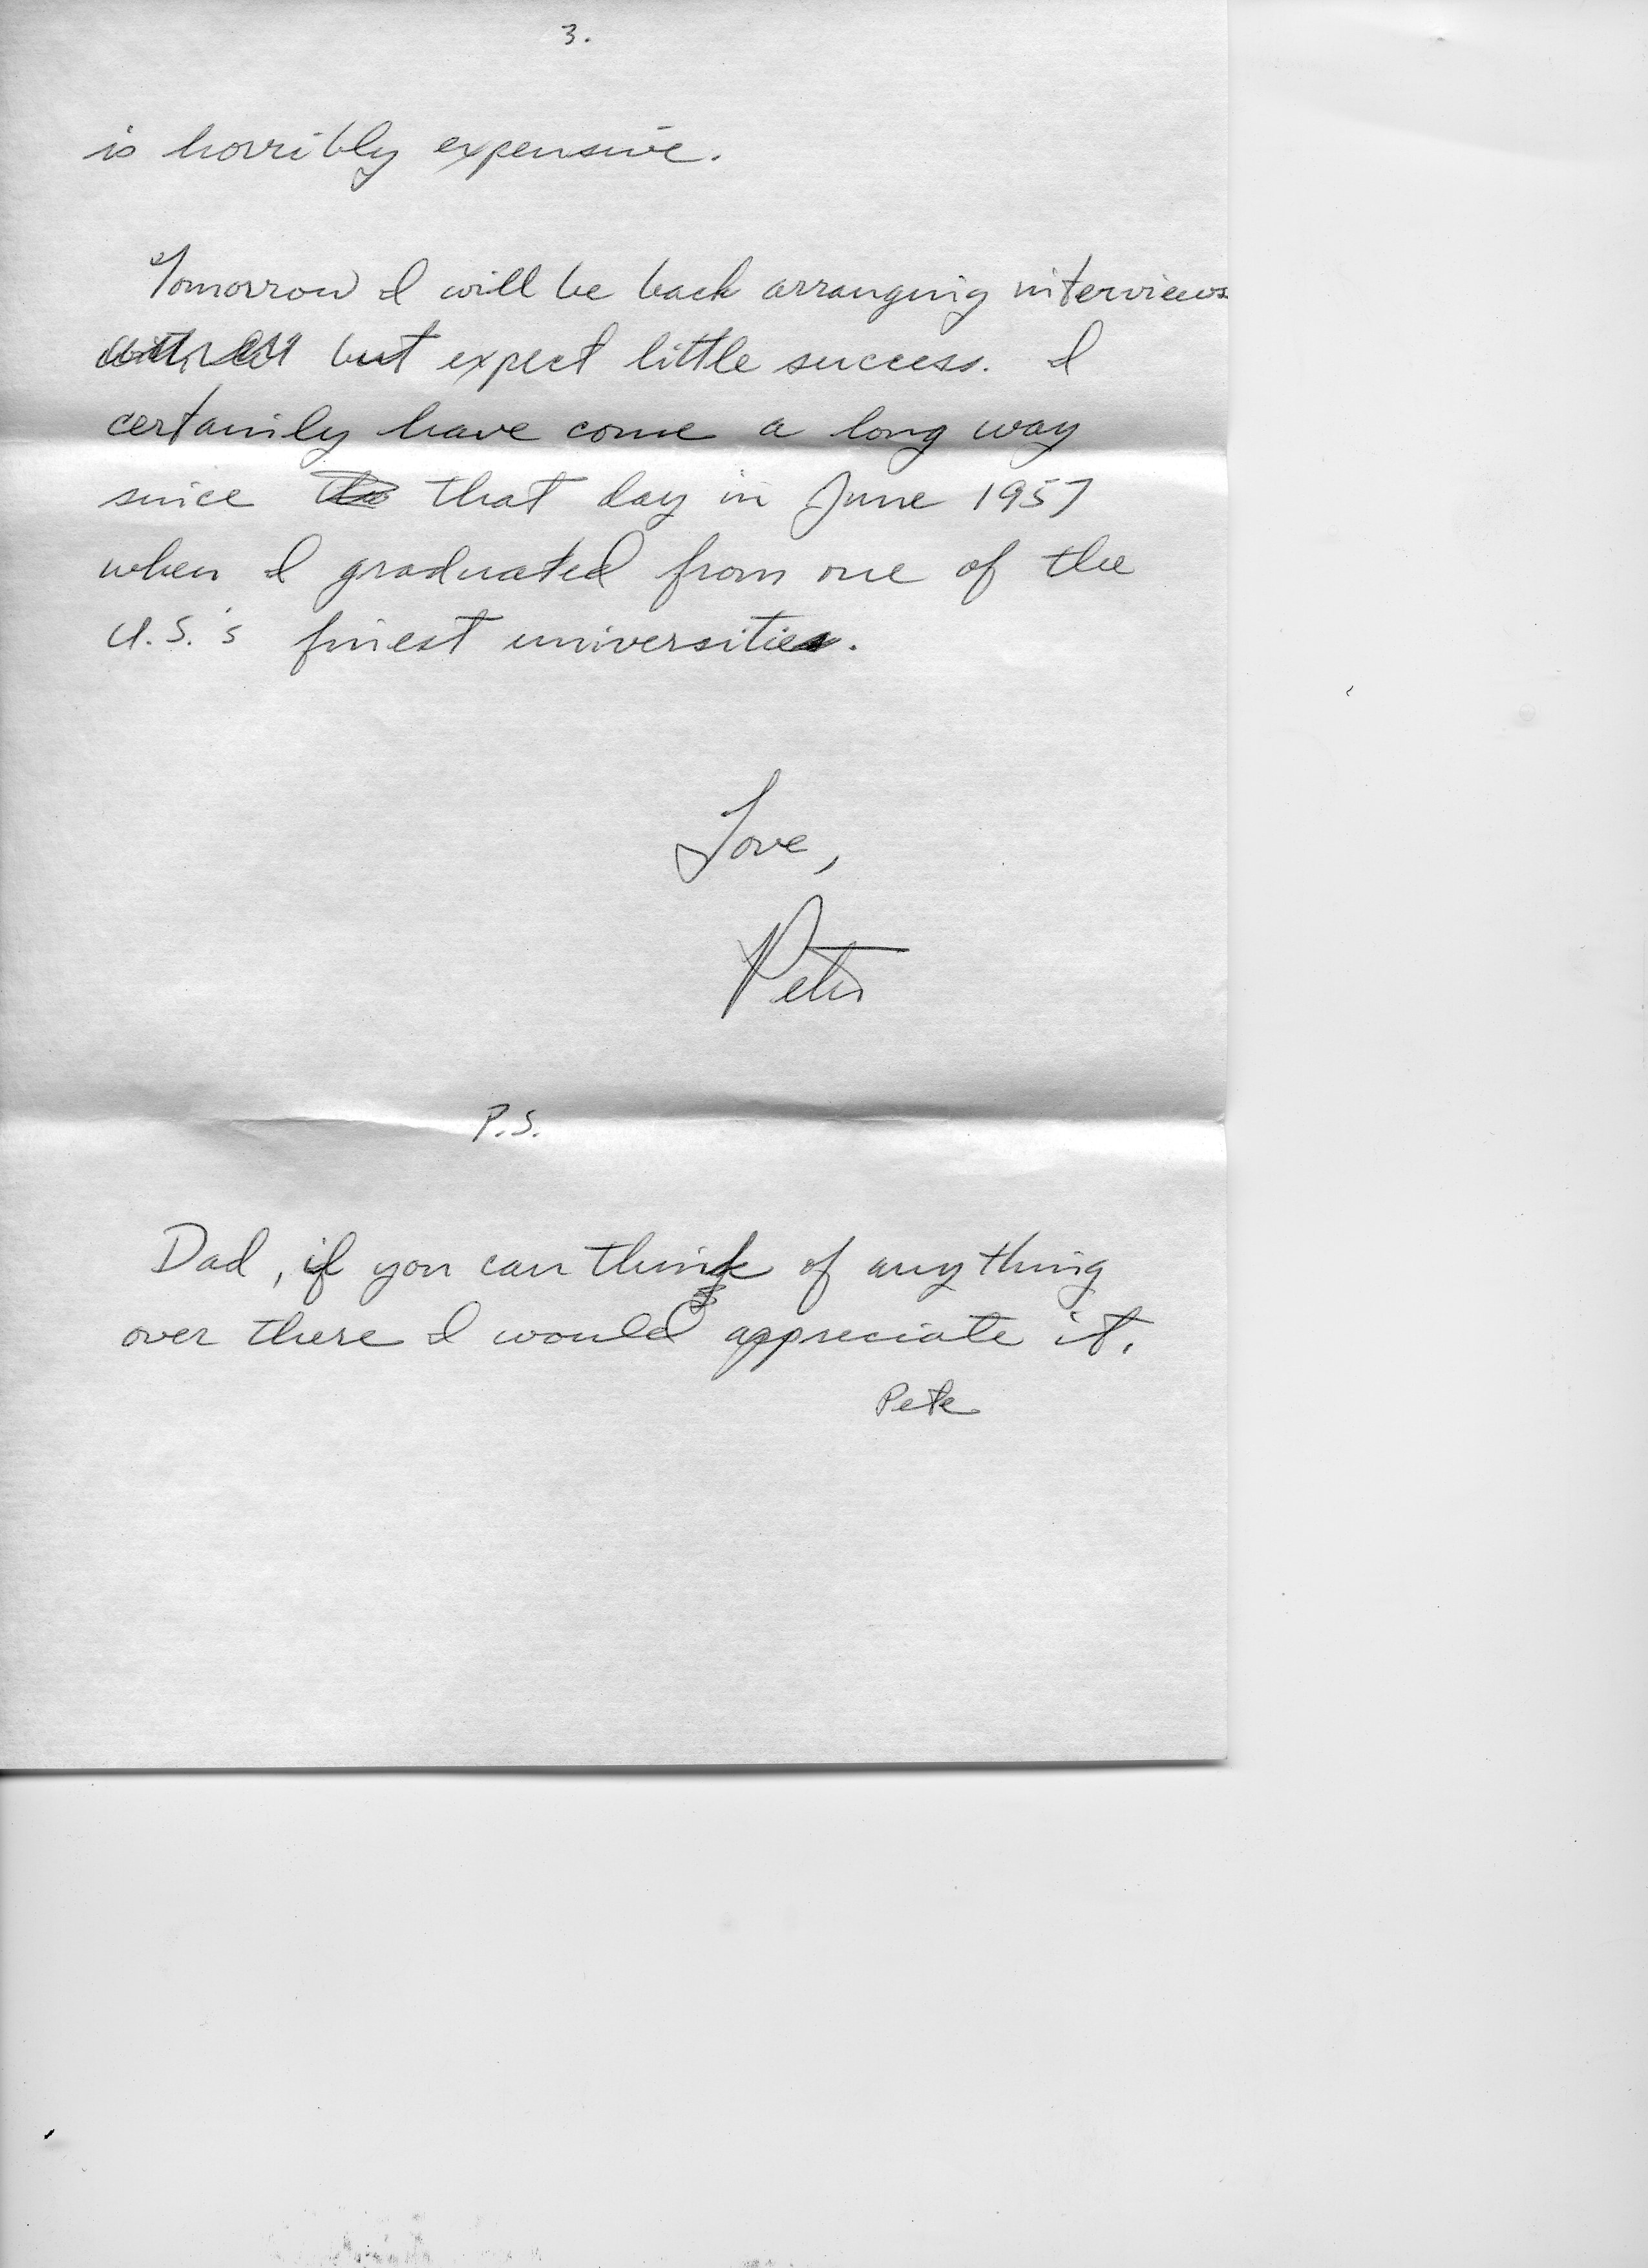 3.
is horribly expensive.
Tomorrow I will be back arranging interviews
but expect little success. I
certainily have come a long way
since that day in June 1957
when I graduated from one of the
U.S.'s finest universities.
Love,
Pete
P.S.
Dad, if you can think of anything
over there I would appreciate it.
Pete